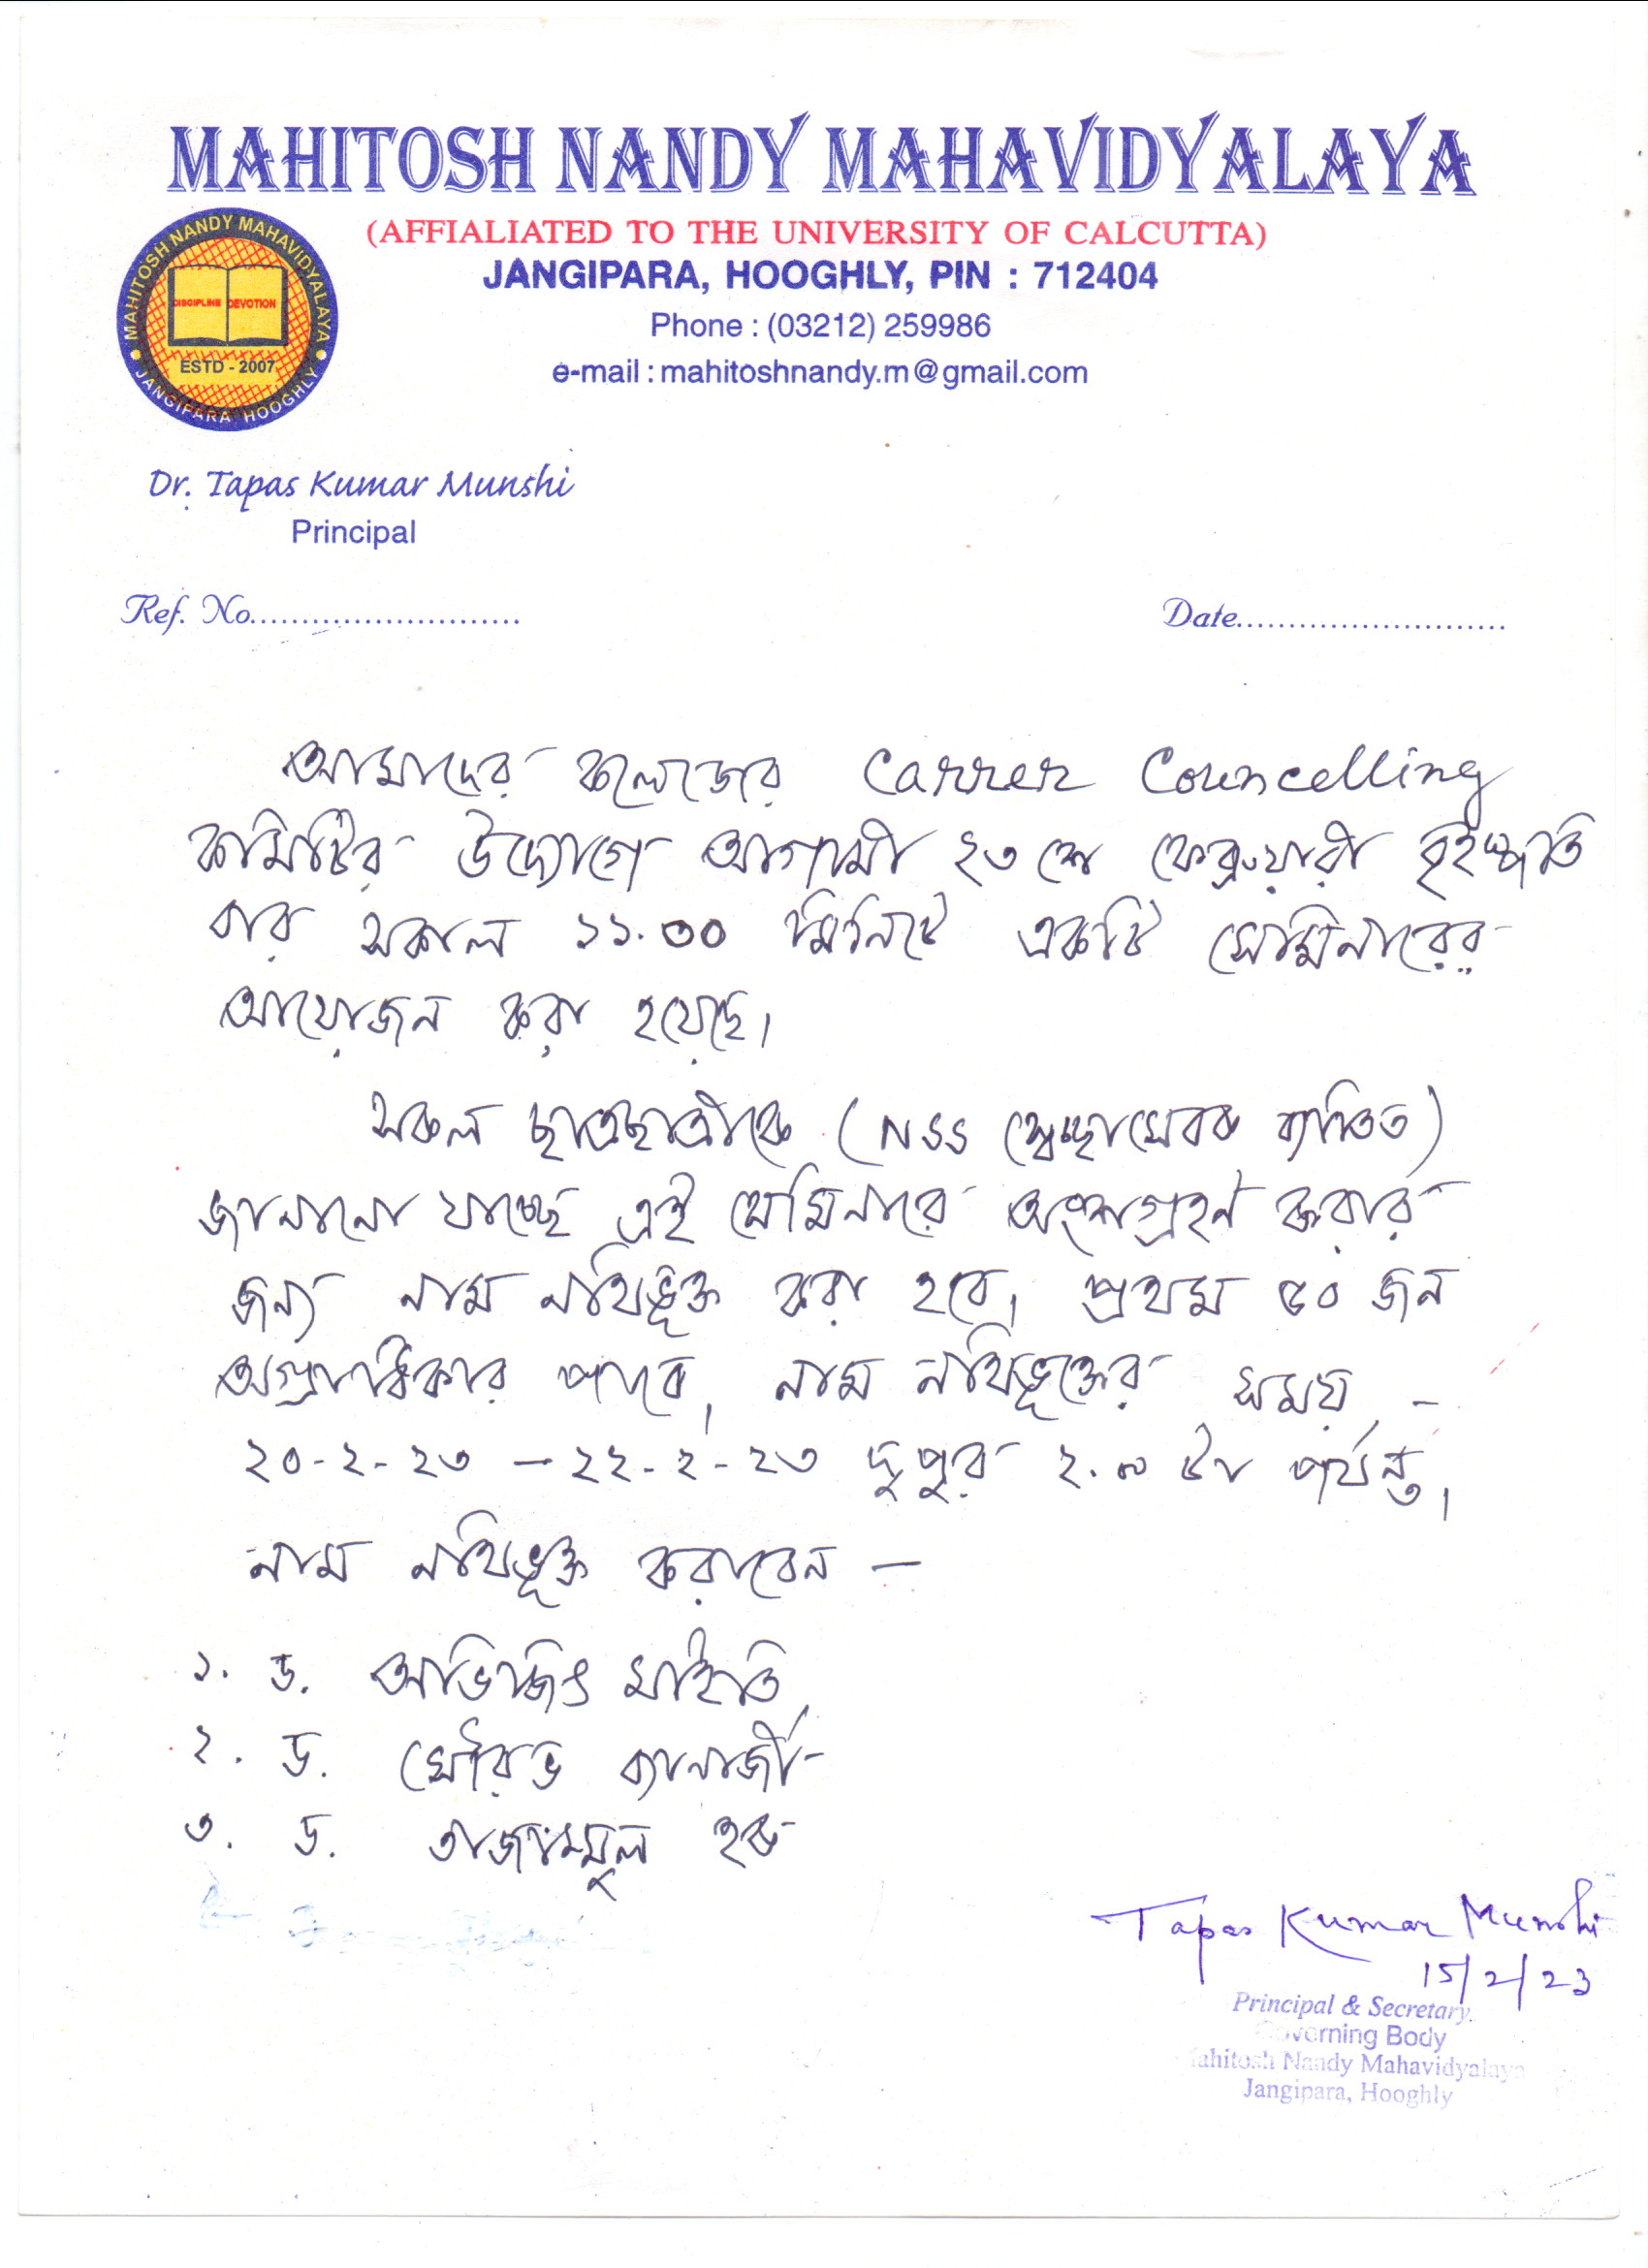 MAHITOSH NANDY MAHAVIDYALAYA
(AFFIALIATED TO THE UNIVERSITY OF CALCUTTA)
JANGIPARA, HOOGHLY, PIN : 712404
Phone : (03212) 259986
e-mail : mahitoshnandy.m@gmail.com
MAHITOSH NANDY MAHAVIDYALAYA
DISCIPLINE DEVOTION
ESTD - 2007
JANGIPARA HOOGHLY
Dr. Tapas Kumar Munshi
Principal
Ref. No..........................
Date..........................
আমাদের কলেজের Carrer Councelling
কমিটির উদ্যোগে আগামী ২৩ শে ফেব্রুয়ারী বৃহস্পতি
বার সকাল ১১.৩০ মিনিটে একটি সেমিনারের
আয়োজন করা হয়েছে।
সকল ছাত্রছাত্রীকে (NSS স্বেচ্ছাসেবক ব্যাতিত)
জানানো যাচ্ছে এই সেমিনারে অংশগ্রহণ করার
জন্য নাম নথিভূক্ত করা হবে। প্রথম ৫০ জন
অগ্রাধিকার পাবে। নাম নথিভূক্তের সময় -
২০-২-২৩ – ২২-২-২৩ দুপুর ২.০০ টা পর্যন্ত।
নাম নথিভূক্ত করাবেন –
১. ড. অভিজিৎ মাইতি
২. ড. সৌরভ ব্যানার্জী
৩. ড. তাজাম্মুল হক
Tapas Kumar Munshi
15/2/23
Principal & Secretary
Governing Body
Mahitosh Nandy Mahavidyalaya
Jangipara, Hooghly